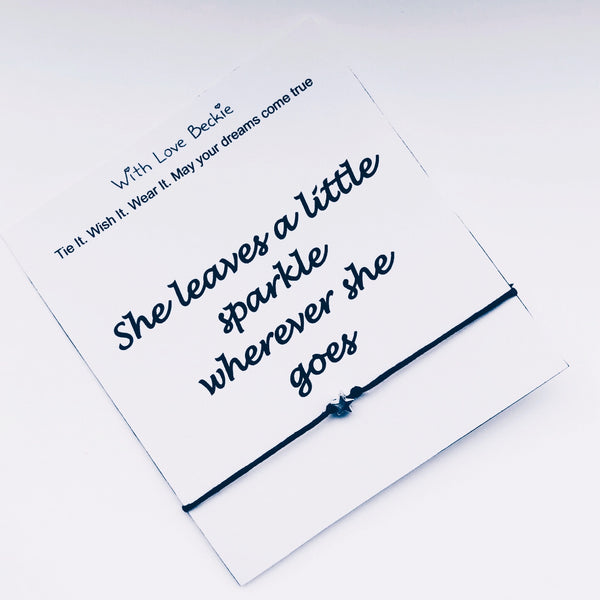 With Love Beckie
Tie It. Wish It. Wear It. May your dreams come true
She leaves a little
sparkle
wherever she
goes